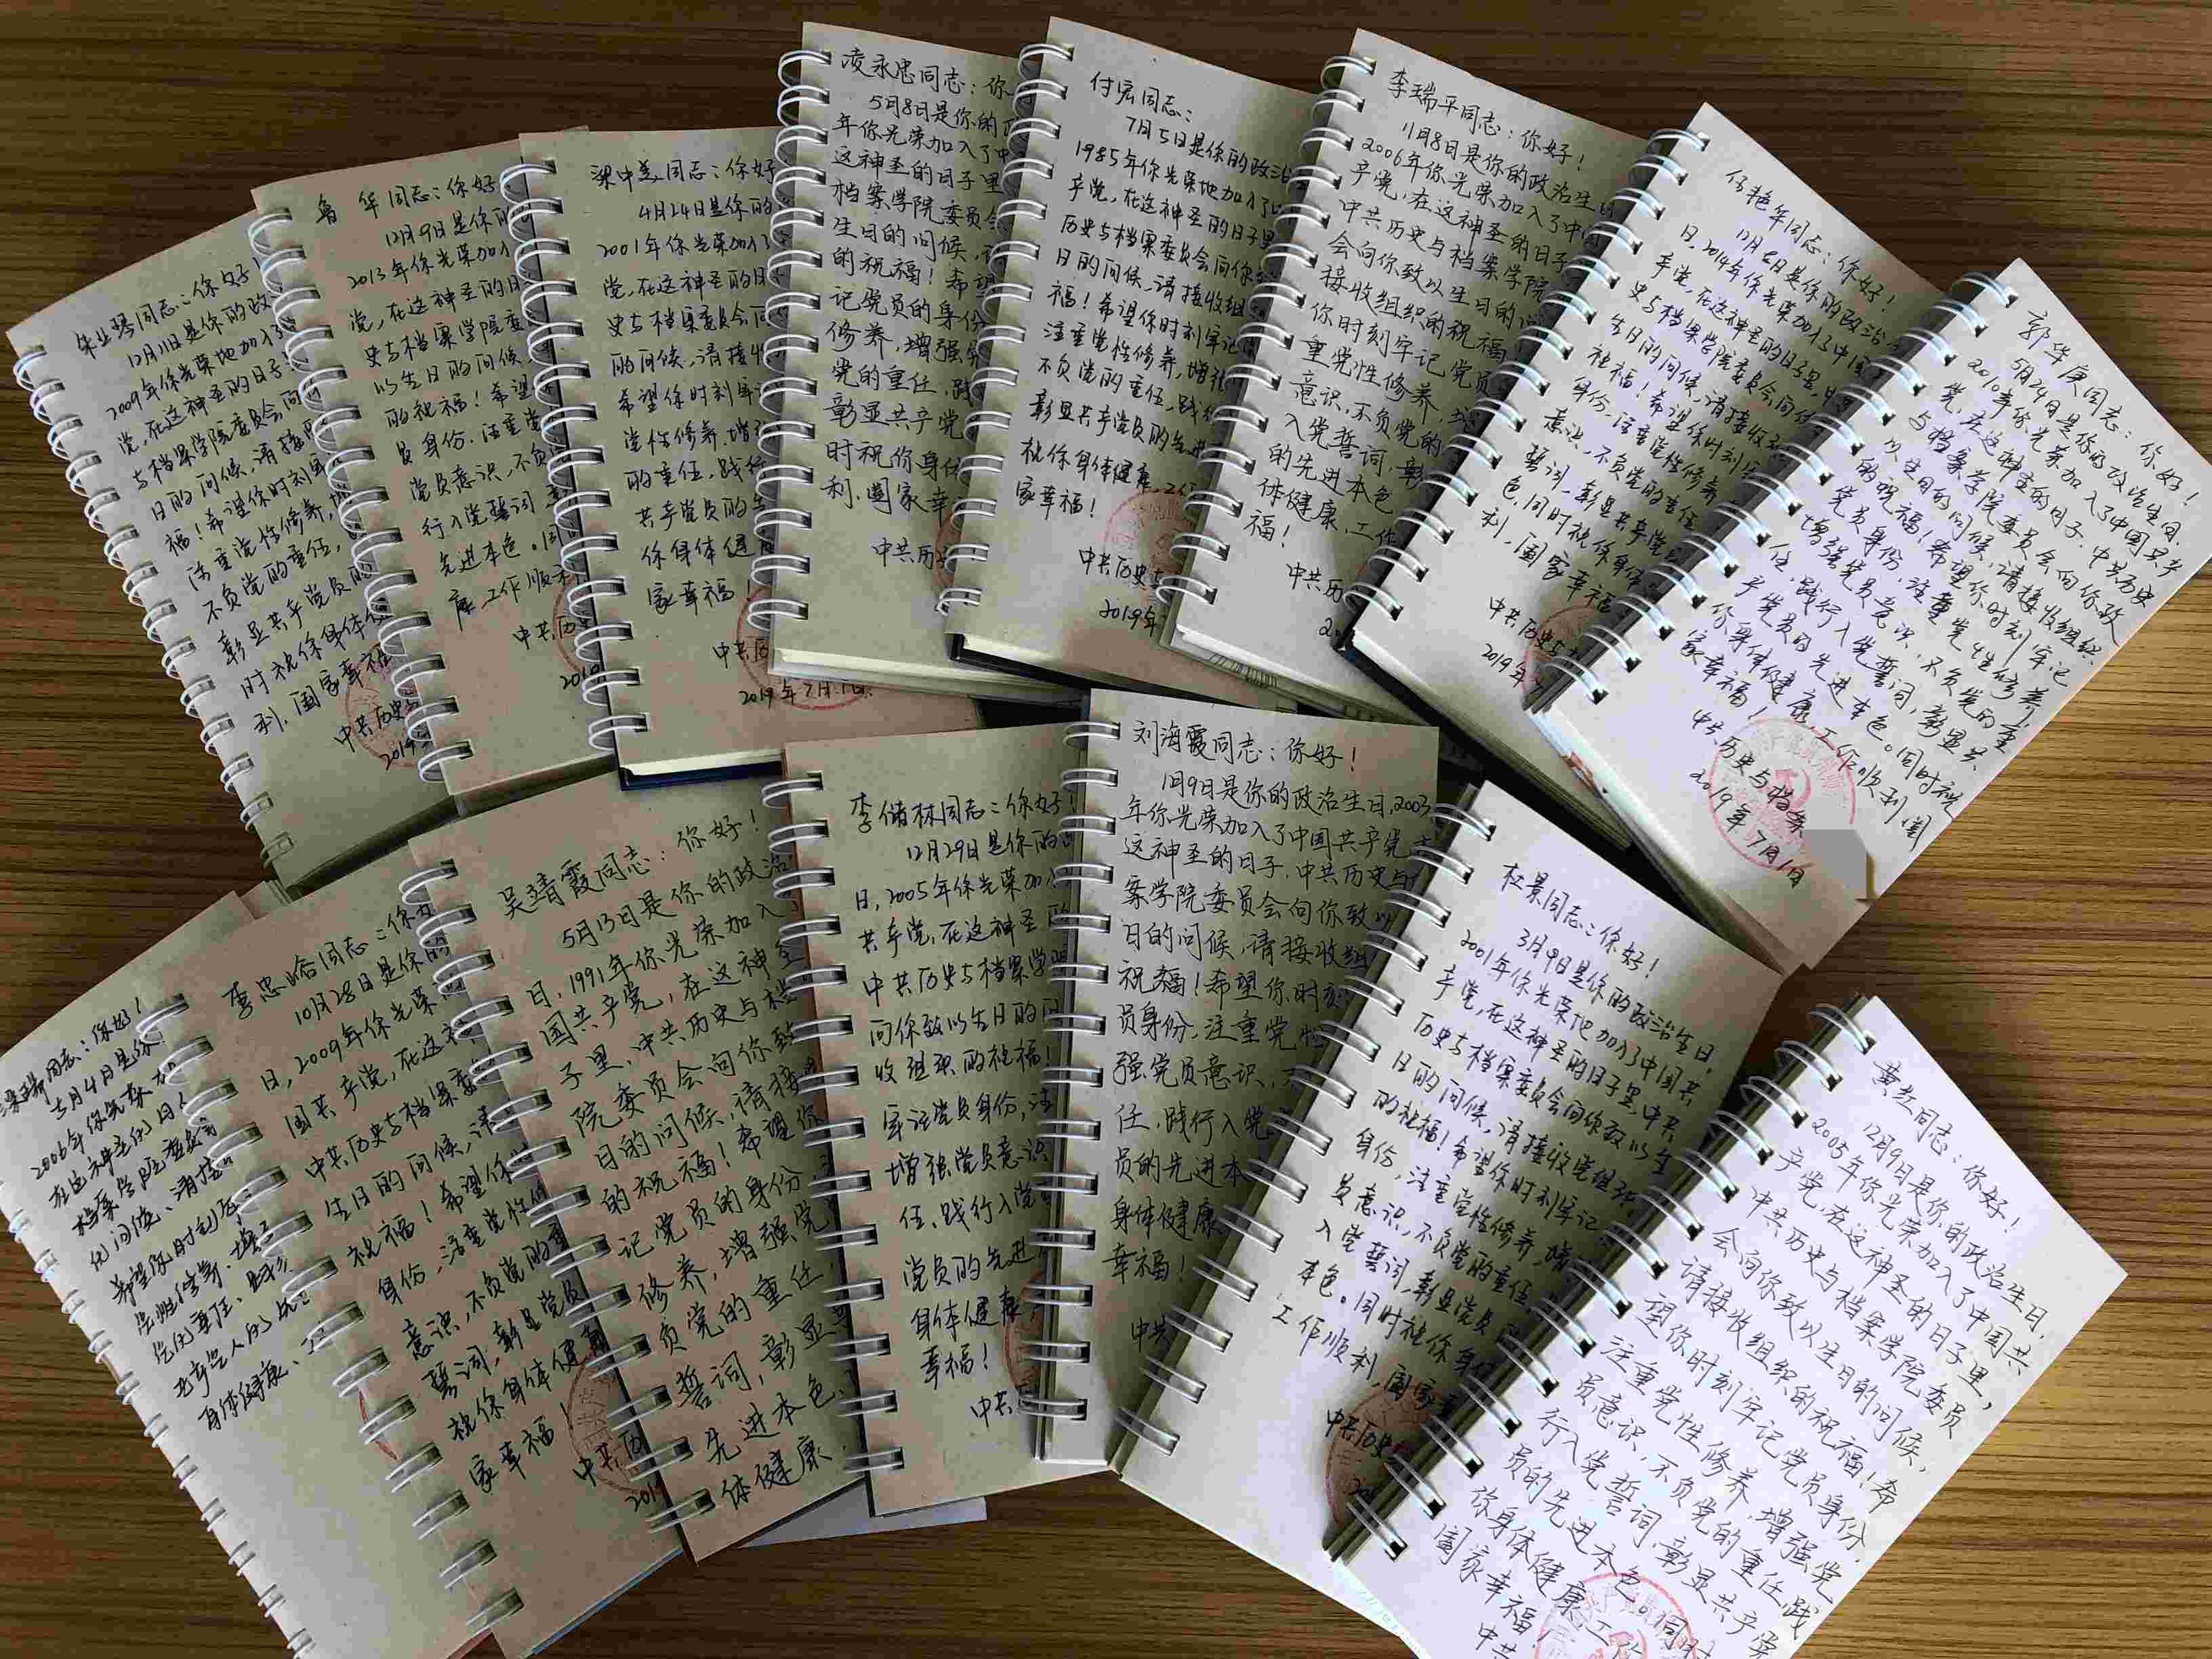 同志：你好！
12月11日是你的政
2009年你光荣地加入了
党，在这神圣的日子
与档案学院委员会向
日的问候，请接
福！希望你时刻
注重党性修养，
不负党的重任，
彰显共产党员的
时祝你身体健
利，阖家幸福
中共历史与
2019
鲁华同志：你好
12月9日是你的
2013年你光荣加入
党，在这神圣的日
史与档案学院委
以生日的问候
的祝福！希望
员身份，注重党
党员意识，不负
行入党誓词
先进本色。同
康，工作顺利
中共历史
201
梁中美同志：你好
4月24日是你的
2001年你光荣加入了
党，在这神圣的日
史与档案委员会向
的问候，请接收
希望你时刻牢记
党性修养，增强
的重任，践行
共产党员的先
你身体健康
家幸福！
中共历
2019年7月1日
凌永忠同志：你
5月8日是你的政
年你光荣加入了中
这神圣的日子里
档案学院委员会
生日的问候，
的祝福！希望
记党员的身份
修养，增强党
党的重任，践
彰显共产党
时祝你身体
利，阖家幸
中共历史
付宏同志：
7月5日是你的政治
1985年你光荣地加入了中
产党，在这神圣的日子里
历史与档案委员会向你
日的问候，请接收组
福！希望你时刻牢记
注重党性修养，增强
不负党的重任，践行
彰显共产党员的先进
祝你身体健康，工作
家幸福！
中共历史
2019年
李瑞平同志：你好！
11月8日是你的政治生
2006年你光荣加入了中国
产党，在这神圣的日子
中共历史与档案学院
会向你致以生日的问
接收组织的祝福
你时刻牢记党员
重党性修养，增
意识，不负党的
入党誓词，彰
的先进本色
体健康，工作
福！
中共历
任艳华同志：你好！
12月8日是你的政治
日，2014年你光荣加入了中国
产党，在这神圣的日子里，中
史与档案学院委员会向你
生日的问候，请接收组
祝福！希望你时刻牢
身份，注重党性修养
意识，不负党的重任
誓词，彰显共产党
色，同时祝你身体
利，阖家幸福
中共历史与
2019年7
郭华庚同志：你好！
5月24日是你的政治生日，
2010年你光荣加入了中国共产
党，在这神圣的日子，中共历史
与档案学院委员会向你致
以生日的问候，请接收组织
的祝福！希望你时刻牢记
党员身份，注重党性修养，
增强党员意识，不负党的重
任，践行入党誓词，彰显共
产党员的先进本色。同时祝
你身体健康，工作顺利，阖
家幸福！
中共历史与档案
2019年7月1日
同志：你好！
5月4日是你
2006年你光荣加
在这神圣的日
档案学院委员
的问候、请接
希望你时刻牢
党性修养、增
党的重任、践行
共产党人的先
身体健康、工
李忠晗同志：你好
10月28日是你的
日，2009年你光荣
国共产党，在这神
中共历史与档案委
生日的问候，请
祝福！希望你
身份，注重党性修
意识，不负党的重
誓词，彰显党员
祝你身体健康
家幸福！
中共历
2019
吴靖霞同志：你好！
5月13日是你的政治
日，1991年你光荣加入了
国共产党，在这神圣
子里，中共历史与档
院委员会向你致
日的问候，请接
的祝福！希望你
记党员的身份
修养，增强党
负党的重任，
誓词，彰显
先进本色，
体健康
李储林同志：你好！
12月29日是你的
日，2005年你光荣加入
共产党，在这神圣的
中共历史与档案学院
向你致以生日的问
收组织的祝福！
牢记党员身份，注
增强党员意识
任，践行入党
党员的先进
身体健康，
幸福！
中共
刘海霞同志：你好！
1月9日是你的政治生日，2003
年你光荣加入了中国共产党，在
这神圣的日子，中共历史与
案学院委员会向你致以
日的问候，请接收组
祝福！希望你时刻
员身份，注重党性
强党员意识，不
任，践行入党
员的先进本
身体健康
幸福！
中共
杜景同志：你好！
3月9日是你的政治生日，
2001年你光荣地加入了中国共
产党，在这神圣的日子里，中共
历史与档案委员会向你致以生
日的问候，请接收党组织
的祝福！希望你时刻牢记
身份，注重党性修养，增
员意识，不负党的重任
入党誓词，彰显党员
本色。同时祝你身体
工作顺利，阖家
中共历史与
黄红同志：你好！
12月9日是你的政治生日，
2005年你光荣加入了中国共
产党，在这神圣的日子里，
中共历史与档案学院委员
会向你致以生日的问候，
请接收组织的祝福！希
望你时刻牢记党员身份，
注重党性修养，增强党
员意识，不负党的重任，践
行入党誓词，彰显共产党
员的先进本色。同时
你身体健康，工作
阖家幸福！
中共